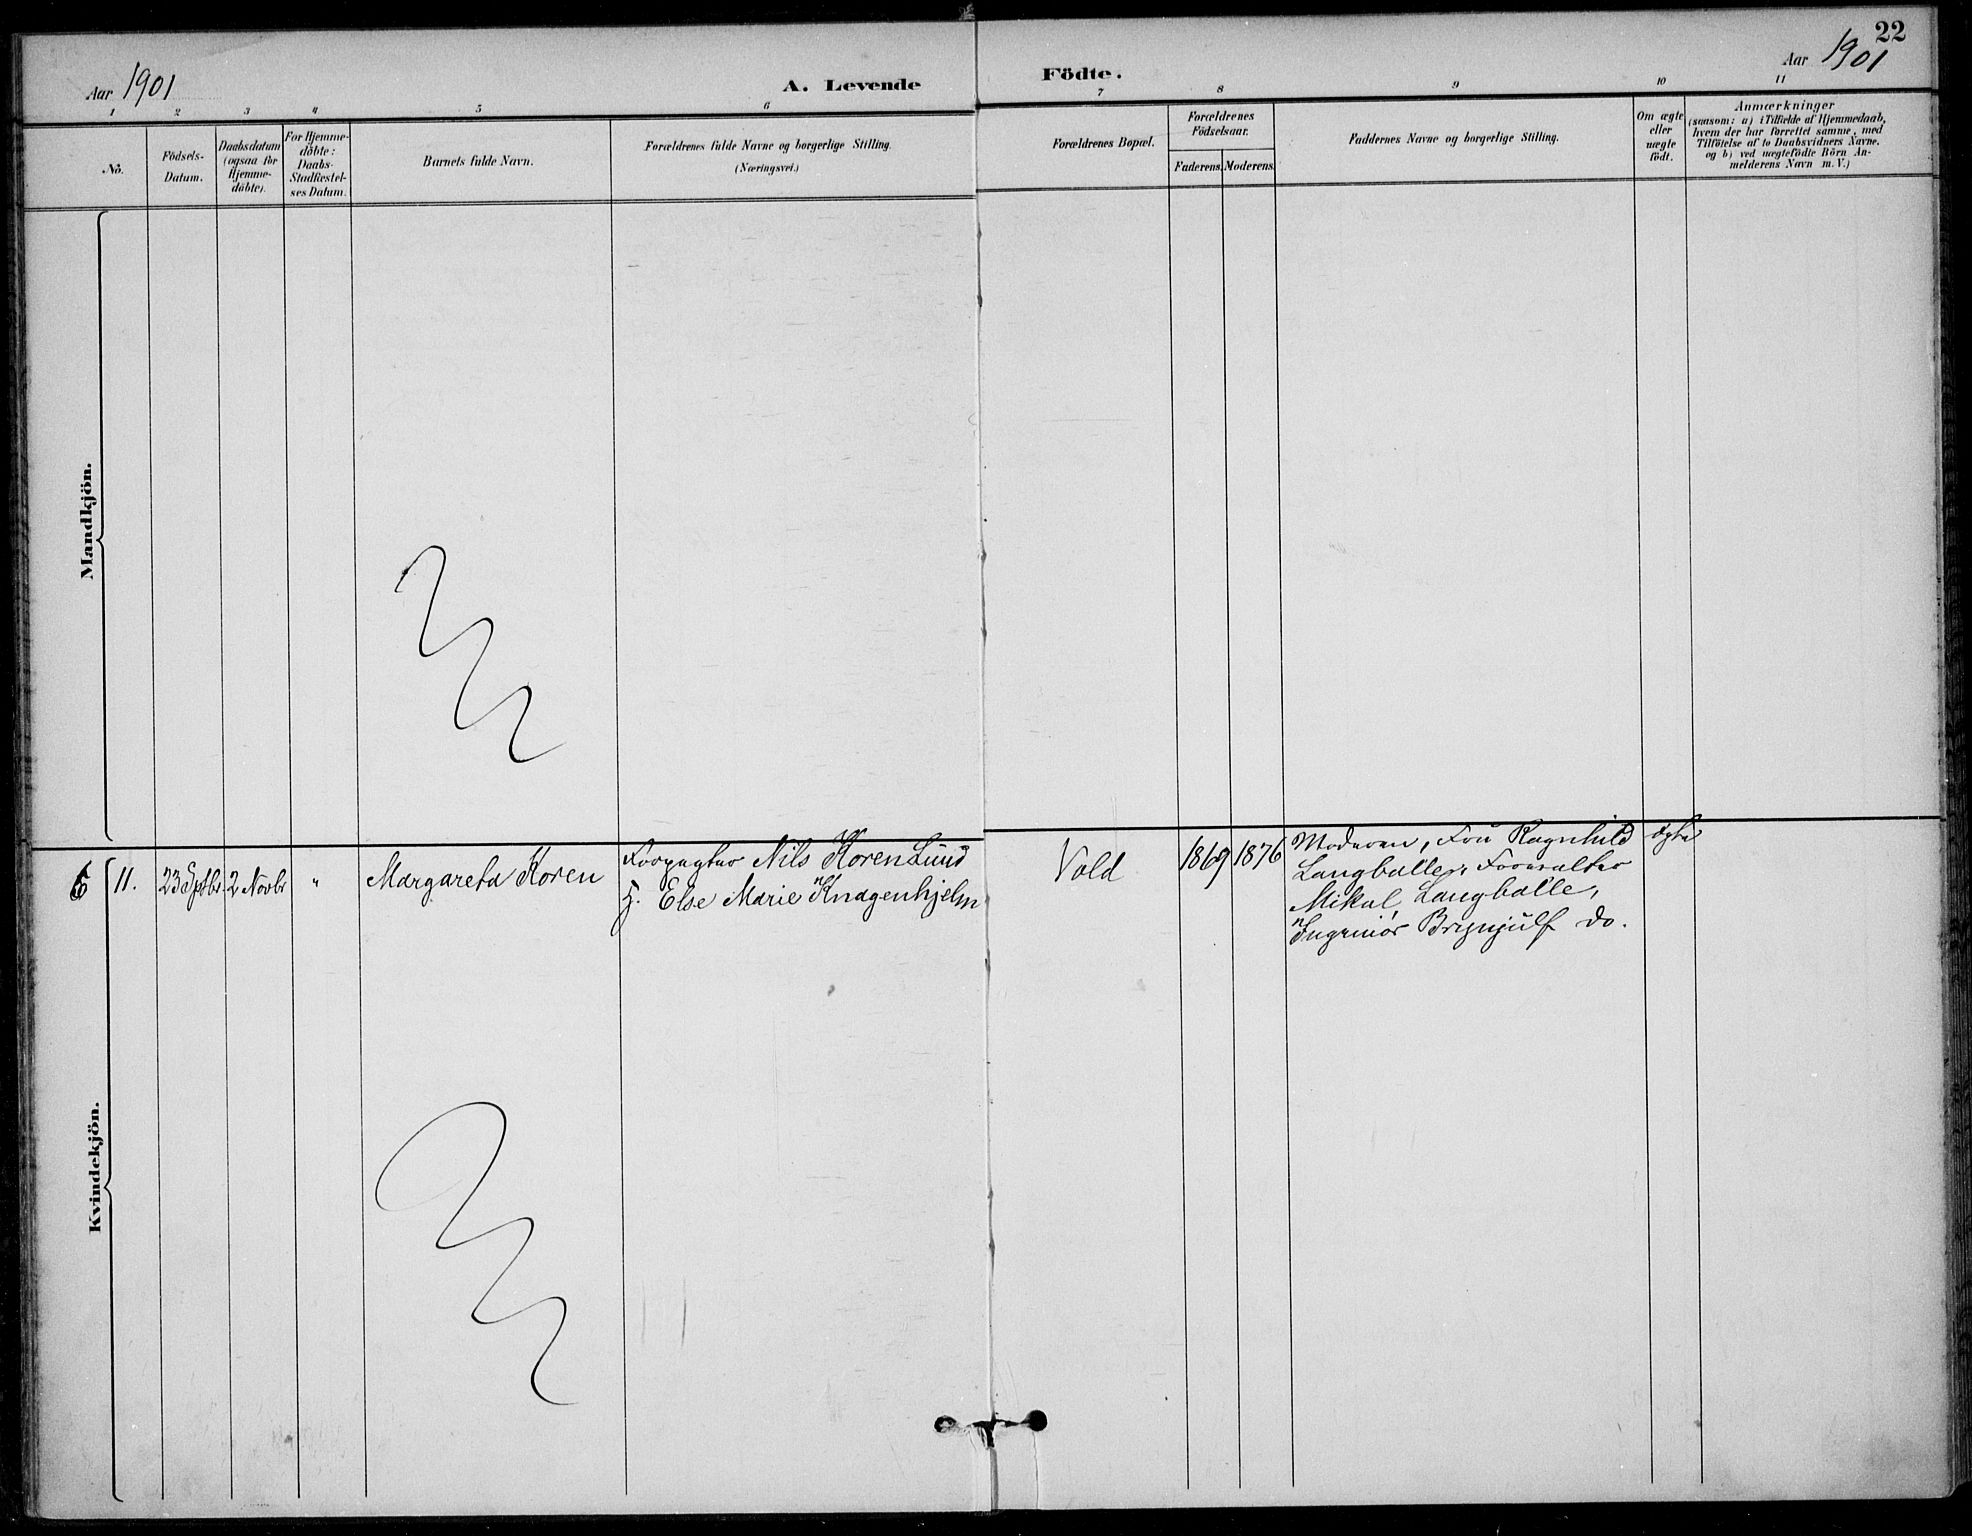 22
Aar 1901
A. Levende
Födte.
Aar 1901
1 2 3 4 5 6 7 8 9 10 11
No.
Födsels-
Datum.
Daabsdatum
(ogsaa for
Hjemme-
döbte).
For Hjemme-
döbte:
Daabs-
Stadfæstel-
ses Datum.
Barnets fulde Navn.
Forældrenes fulde Navne og borgerlige Stilling.
(Næringsvei.)
Forældrenes Bopæl.
Forældrenes
Födselsaar.
Faderens. Moderens.
Faddernes Navne og borgerlige Stilling.
Om ægte
eller
uægte
födt.
Anmærkninger
(saasom: a) i Tilfælde af Hjemmedaab,
hvem der har forrettet samme, med
Tilföielse af to Daabsvidners Navne,
og b) ved uægtefödte Börn An-
melderens Navn m. V.)
Mandkjön.
Kvindekjön.
6 11. 23 Sptbr 2 Novbr " Margareta Koren
Forpagter Nils Koren Lund
H. Else Marie Knagenhjelm
Vold
1869 1876
Moderen, Fru Ragnhild
Langballe, Forvalter
Mikal Langballe,
Ingeniør Brynjulf do.
ægte